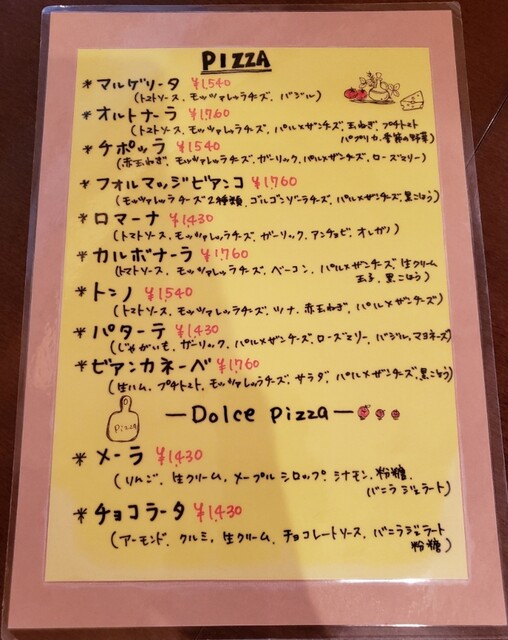 PIZZA
* マルゲリータ ¥1,540
(トマトソース、モッツァレッラチーズ、バジル)
* オルトナーラ ¥1,760
(トマトソース、モッツァレッラチーズ、パルメザンチーズ、玉ねぎ、プチトマト
パプリカ、季節の野菜)
* チポッラ ¥1,540
(赤玉ねぎ、モッツァレッラチーズ、ガーリック、パルメザンチーズ、ローズマリー)
* フォルマッジビアンコ ¥1,760
(モッツァレッラチーズ2種類、ゴルゴンゾーラチーズ、パルメザンチーズ、黒こしょう)
* ロマーナ ¥1,430
(トマトソース、モッツァレッラチーズ、ガーリック、アンチョビ、オレガノ)
* カルボナーラ ¥1,760
(トマトソース、モッツァレッラチーズ、ベーコン、パルメザンチーズ、生クリーム
玉子、黒こしょう)
* トンノ ¥1,540
(トマトソース、モッツァレッラチーズ、ツナ、赤玉ねぎ、パルメザンチーズ)
* パターテ ¥1,430
(じゃがいも、ガーリック、パルメザンチーズ、ローズマリー、バジル、マヨネーズ)
* ビアンカネーベ ¥1,760
(生ハム、プチトマト、モッツァレッラチーズ、サラダ、パルメザンチーズ、黒こしょう)
pizza
—Dolce Pizza—
* メーラ ¥1,430
(りんご、生クリーム、メープルシロップ、シナモン、粉糖、
バニラジェラート)
* チョコラータ ¥1,430
(アーモンド、クルミ、生クリーム、チョコレートソース、バニラジェラート
粉糖)